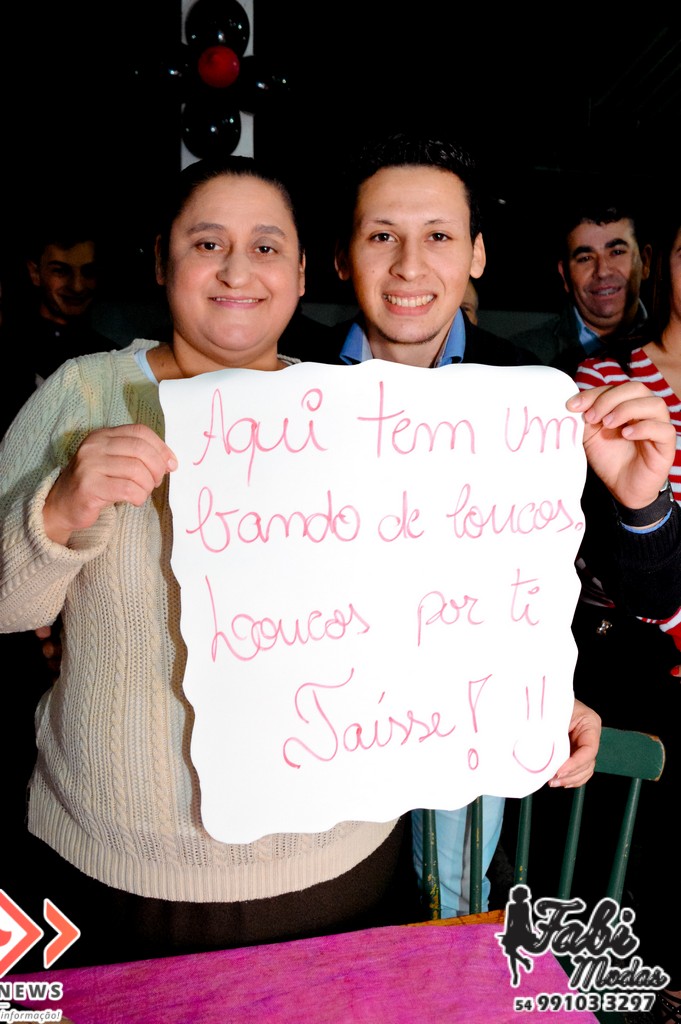 Aqui tem um
bando de loucos.
Loucos por ti
Taísse! !!
NEWS
informação!
Fabi
Modas
54 99103 3297